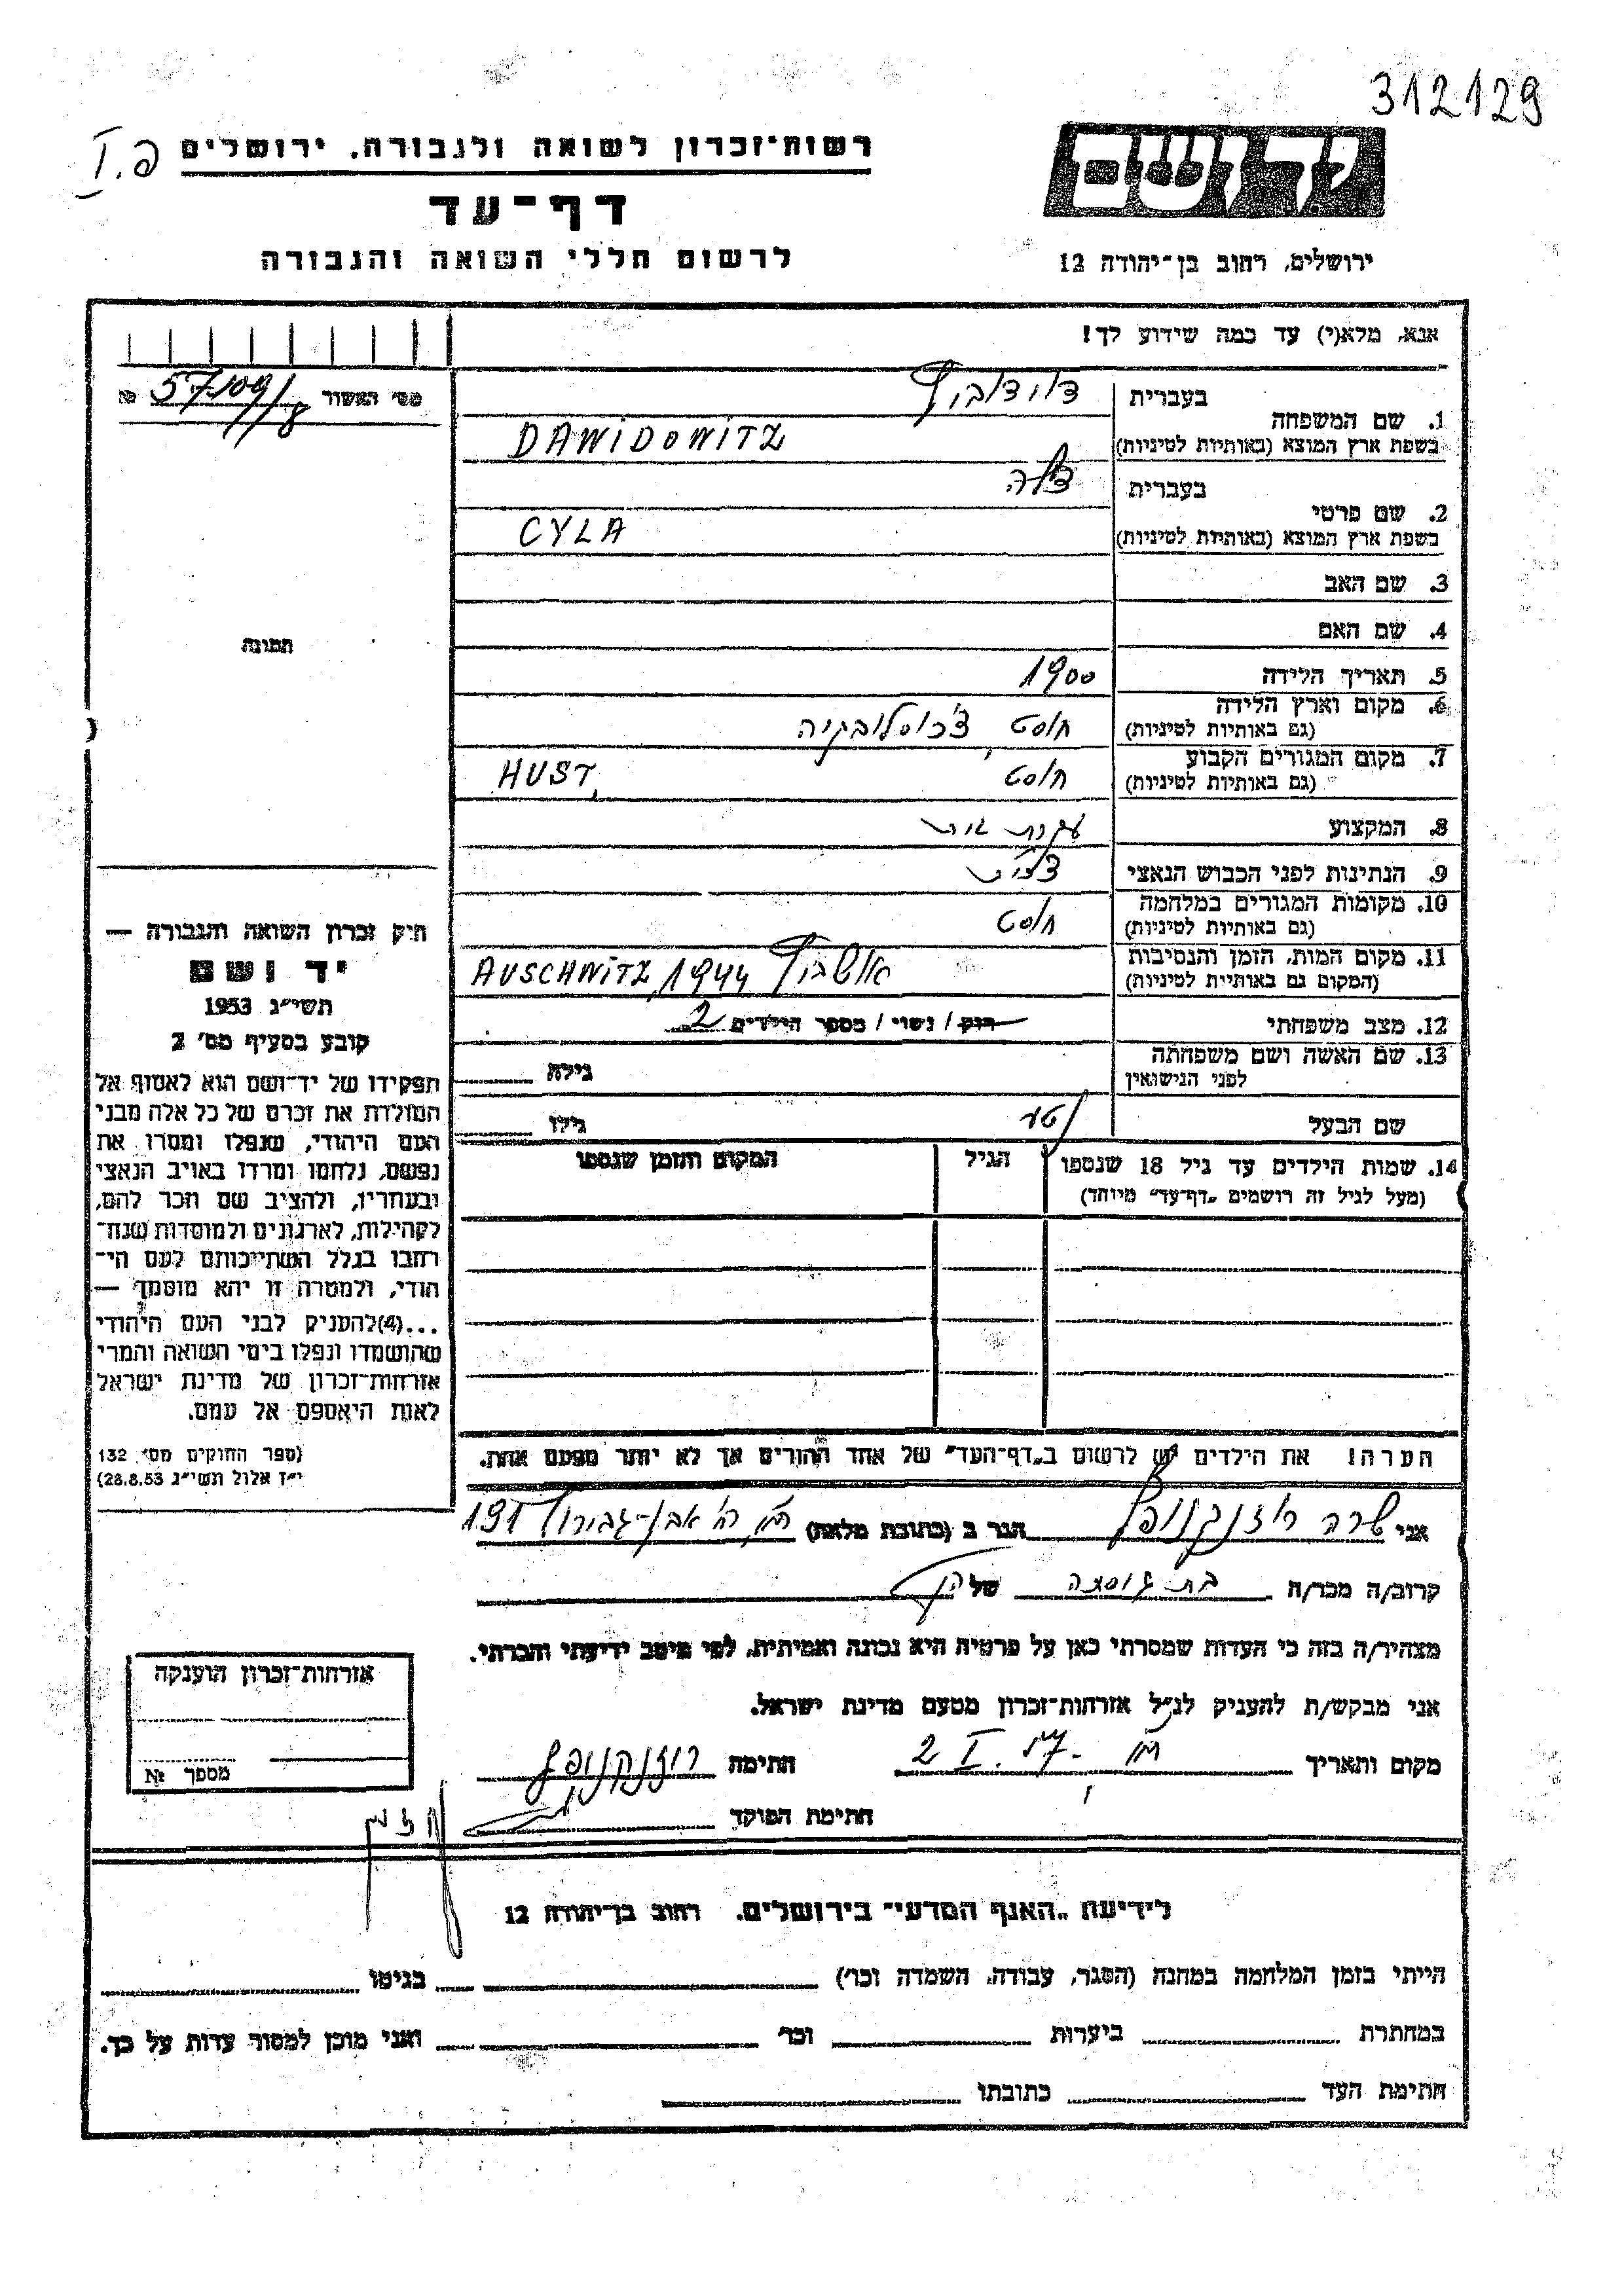 312129
רשות־זכרון לשואה ולגבורה, ירושלים
דף־עד
לרשום חללי השואה והגבורה
יד ושם
ירושלים, רחוב בן־יהודה 12
אנא, מלא(י) עד כמה שידוע לך!
מס׳ האשור № 57109/8
1. שם המשפחה
בעברית דוידוביץ
בשפת ארץ המוצא (באותיות לטיניות) DAWIDOWITZ
2. שם פרטי
בעברית צילה
בשפת ארץ המוצא (באותיות לטיניות) CYLA
3. שם האב
4. שם האם
5. תאריך הלידה 1900
6. מקום וארץ הלידה חוסט צ׳כוסלובקיה
(גם באותיות לטיניות)
7. מקום המגורים הקבוע חוסט HUST,
(גם באותיות לטיניות)
8. המקצוע עקרת בית
9. הנתינות לפני הכבוש הנאצי צ׳כית
10. מקומות המגורים במלחמה חוסט
(גם באותיות לטיניות)
11. מקום המות, הזמן והנסיבות אושביץ AUSCHWITZ, 1944
(המקום גם באותיית לטיניות)
12. מצב משפחתי רוק / נשוי / מספר הילדים 2
13. שם האשה ושם משפחתה
לפני הנישואין גילה
שם הבעל גילו
14. שמות הילדים עד גיל 18 שנספו הגיל המקום והזמן שנספו
(מעל לגיל זה רושמים „דף־עד״ מיוחד)
תמונה
חיק זכרון השואה והגבורה —
יד ושם
תשי״ג 1953
קובע בסעיף מס׳ 2
תפקידו של יד־ושם הוא לאסוף אל
המולדת את זכרם של כל אלה מבני
העם היהודי, שנפלו ומסרו את
נפשם, נלחמו ומרדו באויב הנאצי
ובעוזריו, ולהציב שם וזכר להם,
לקהילות, לארגונים ולמוסדות שנח־
רחבו בגלל השתייכותם לעם הי־
הודי, ולמטרה זו יהא מוסמך —
...(4) להעניק לבני העם היהודי
שהושמדו ונפלו בימי השואה והמרי
אזרחות־זכרון של מדינת ישראל
לאות היאספם אל עמם.
(ספר החוקים מס׳ 132
י״ז אלול תשי״ג 28.8.53)
הערה! את הילדים יש לרשום ב„דף־העד״ של אחד ההורים אך לא יותר מפעם אחת.
אני שרה רוזנקנופף הגר ב (כתובת מלאה) רח׳ אבן־גבירול 191
קרוב/ה מכר/ה בת גיסתה של
מצהיר/ה בזה כי העדות שמסרתי כאן על פרטיה היא נכונה ואמיתית, לפי מיטב ידיעתי והכרתי.
אני מבקש/ת להעניק לנ״ל אזרחות־זכרון מטעם מדינת ישראל.
מקום ותאריך 2 I. 57 חתימה רוזנקנופף
חתימת הפוקד
אזרחות־זכרון הוענקה
מספר №
לידיעת „האגף המדעי״ בירושלים. רחוב בן־יהודה 12
הייתי בזמן המלחמה במחנה (הסגר, עבודה, השמדה וכו׳) בגיטו
במחתרת ביערות וכו׳ ואני מוכן למסור עדות על כך.
חתימת העד כתובתו